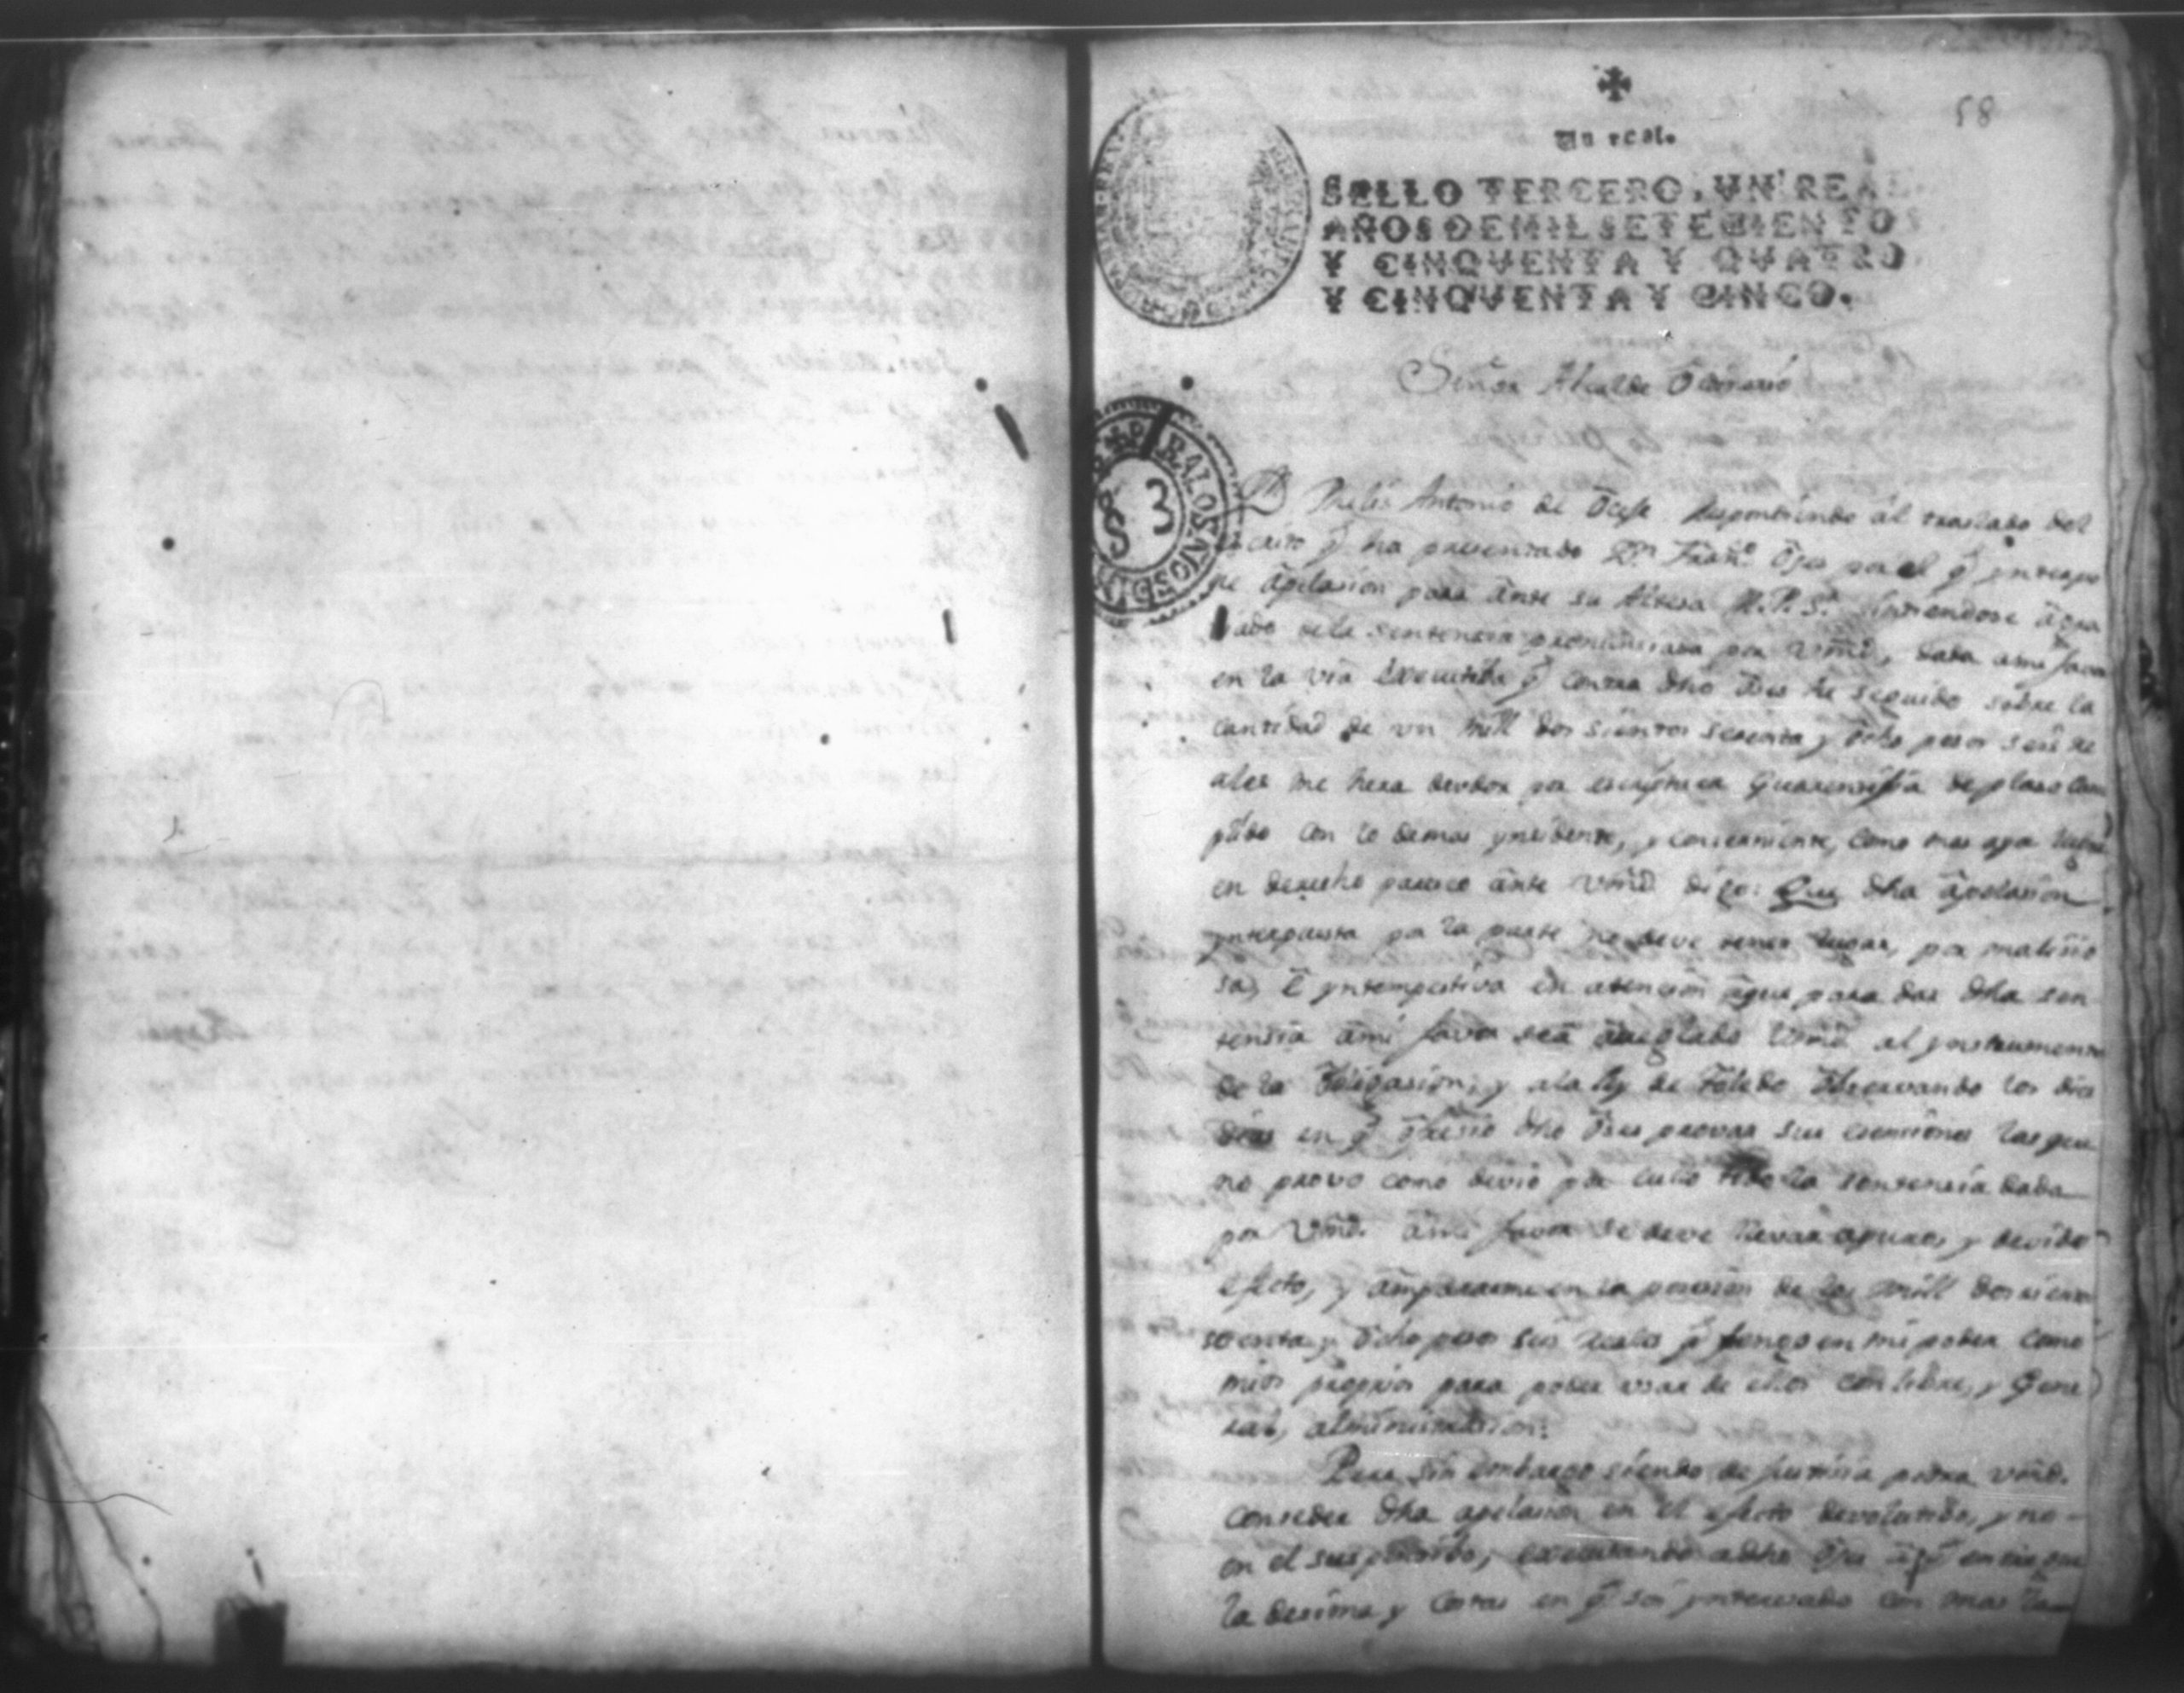 58
Un real.
SELLO TERCERO, VN REAL
AÑOS DE MIL SETECIENTOS
Y CINQVENTA Y QVATRO
Y CINQVENTA Y CINCO.
Señor Alcalde Ordinario
PARA LOS AÑOS D
83
Dn Antonio de respondiendo al traslado del
escrito q̃ ha presentado Dn Franco por el q̃ ynterpo
ne apelasion para ante su Altesa M.P.S. sintiendose agra
viado dela sentensia pronunsiada por Vmd, dada ami favor
en la via executiba q̃ contra dho he seguido sobre la
cantidad de un mill dos sientos y ocho pesos seis re
ales me hera deudor por escriptura Guarentisia de plaso cum
plido con lo demas ynsidente, y conserniente, como mas aya lugar
en derecho paresco ante Vmd digo: Que dha apelasion
ynterpuesta por la parte no deve tener lugar, por malisio
sa, E yntempestiva en atension aque para dar dha sen
tensia ami favor sea arreglado Vmd al ynstrumento
de la obligasion, y ala ley de Toledo observando los dies
dias en q̃ dho provar sus las que
no provo como devio por cuio todo la sentensia dada
por Vmd. ami favor se deve llevar apura, y devido
efecto, y ampararme en la posesion de los mill dos sientos
y ocho pesos seis reales q̃ tengo en mi poder como
mios propios para poder usar de ellos con libre, y Gene
ral, alministrasion:
Pero sin embargo siendo de justisia podra Vmd.
conseder dha apelasion en el efecto devolutibo, y no
en el suspensibo, executando adho aq̃ entregue
la desima y costas en q̃ soi ynteresado con mas la